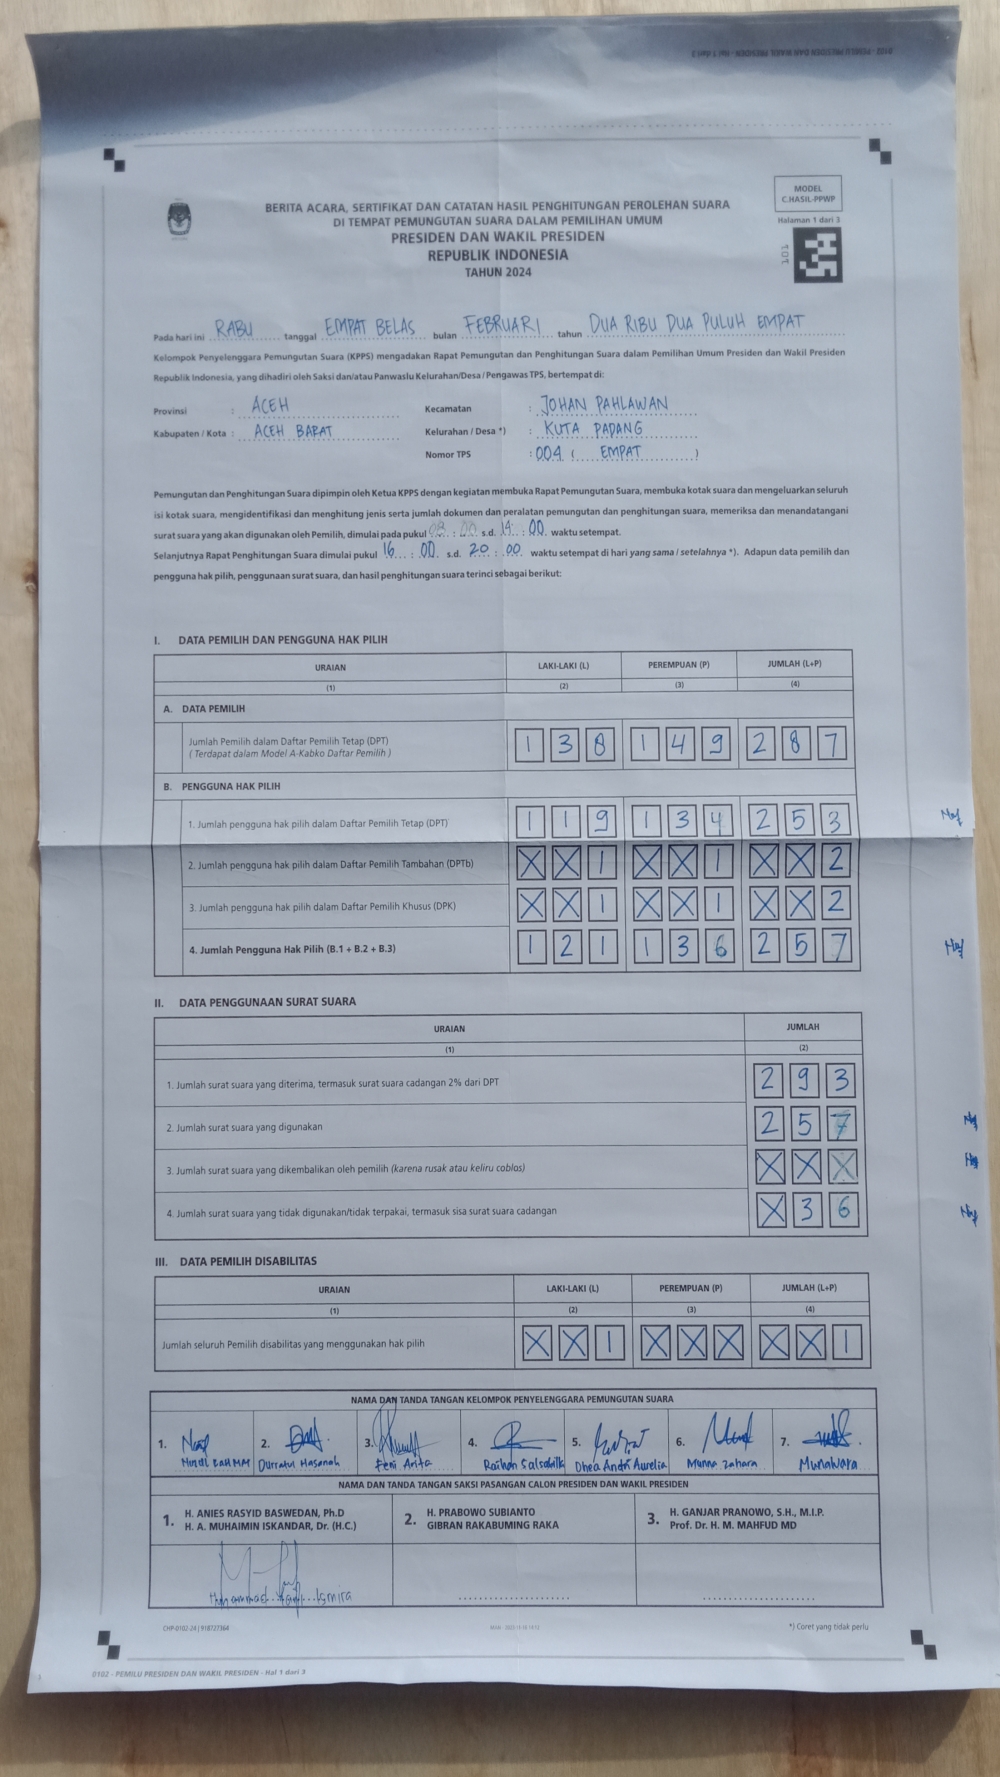 0102 - PEMILU PRESIDEN DAN WAKIL PRESIDEN - Hal 1 dari 3
MODEL
C.HASIL-PPWP
Halaman 1 dari 3
101
BERITA ACARA, SERTIFIKAT DAN CATATAN HASIL PENGHITUNGAN PEROLEHAN SUARA
DI TEMPAT PEMUNGUTAN SUARA DALAM PEMILIHAN UMUM
PRESIDEN DAN WAKIL PRESIDEN
REPUBLIK INDONESIA
TAHUN 2024
Pada hari ini RABU tanggal EMPAT BELAS bulan FEBRUARI tahun DUA RIBU DUA PULUH EMPAT
Kelompok Penyelenggara Pemungutan Suara (KPPS) mengadakan Rapat Pemungutan dan Penghitungan Suara dalam Pemilihan Umum Presiden dan Wakil Presiden
Republik Indonesia, yang dihadiri oleh Saksi dan/atau Panwaslu Kelurahan/Desa / Pengawas TPS, bertempat di:
Provinsi : ACEH Kecamatan : JOHAN PAHLAWAN
Kabupaten / Kota : ACEH BARAT Kelurahan / Desa *) : KUTA PADANG
Nomor TPS : 004 ( EMPAT )
Pemungutan dan Penghitungan Suara dipimpin oleh Ketua KPPS dengan kegiatan membuka Rapat Pemungutan Suara, membuka kotak suara dan mengeluarkan seluruh
isi kotak suara, mengidentifikasi dan menghitung jenis serta jumlah dokumen dan peralatan pemungutan dan penghitungan suara, memeriksa dan menandatangani
surat suara yang akan digunakan oleh Pemilih, dimulai pada pukul 08 : 00 s.d. 14 : 00 waktu setempat.
Selanjutnya Rapat Penghitungan Suara dimulai pukul 16 : 00 s.d. 20 : 00 waktu setempat di hari yang sama / setelahnya *). Adapun data pemilih dan
pengguna hak pilih, penggunaan surat suara, dan hasil penghitungan suara terinci sebagai berikut:
I. DATA PEMILIH DAN PENGGUNA HAK PILIH
URAIAN LAKI-LAKI (L) PEREMPUAN (P) JUMLAH (L+P)
(1) (2) (3) (4)
A. DATA PEMILIH
Jumlah Pemilih dalam Daftar Pemilih Tetap (DPT) 1 3 8 1 4 9 2 8 7
( Terdapat dalam Model A-Kabko Daftar Pemilih )
B. PENGGUNA HAK PILIH
1. Jumlah pengguna hak pilih dalam Daftar Pemilih Tetap (DPT) 1 1 9 1 3 4 2 5 3
2. Jumlah pengguna hak pilih dalam Daftar Pemilih Tambahan (DPTb) X X 1 X X 1 X X 2
3. Jumlah pengguna hak pilih dalam Daftar Pemilih Khusus (DPK) X X 1 X X 1 X X 2
4. Jumlah Pengguna Hak Pilih (B.1 + B.2 + B.3) 1 2 1 1 3 6 2 5 7
II. DATA PENGGUNAAN SURAT SUARA
URAIAN JUMLAH
(1) (2)
1. Jumlah surat suara yang diterima, termasuk surat suara cadangan 2% dari DPT 2 9 3
2. Jumlah surat suara yang digunakan 2 5 7
3. Jumlah surat suara yang dikembalikan oleh pemilih (karena rusak atau keliru coblos) X X X
4. Jumlah surat suara yang tidak digunakan/tidak terpakai, termasuk sisa surat suara cadangan X 3 6
III. DATA PEMILIH DISABILITAS
URAIAN LAKI-LAKI (L) PEREMPUAN (P) JUMLAH (L+P)
(1) (2) (3) (4)
Jumlah seluruh Pemilih disabilitas yang menggunakan hak pilih X X 1 X X X X X 1
NAMA DAN TANDA TANGAN KELOMPOK PENYELENGGARA PEMUNGUTAN SUARA
1. 2. 3. 4. 5. 6. 7.
Durratul Hasanah Feni Arita Raihan Salsabilk Dhea Andri Aurelia Munna Zahara Munawara
NAMA DAN TANDA TANGAN SAKSI PASANGAN CALON PRESIDEN DAN WAKIL PRESIDEN
1. H. ANIES RASYID BASWEDAN, Ph.D
H. A. MUHAIMIN ISKANDAR, Dr. (H.C.)
2. H. PRABOWO SUBIANTO
GIBRAN RAKABUMING RAKA
3. H. GANJAR PRANOWO, S.H., M.I.P.
Prof. Dr. H. M. MAHFUD MD
Ismira
CHP-0102-24 | 918727364
*) Coret yang tidak perlu
0102 - PEMILU PRESIDEN DAN WAKIL PRESIDEN - Hal 1 dari 3